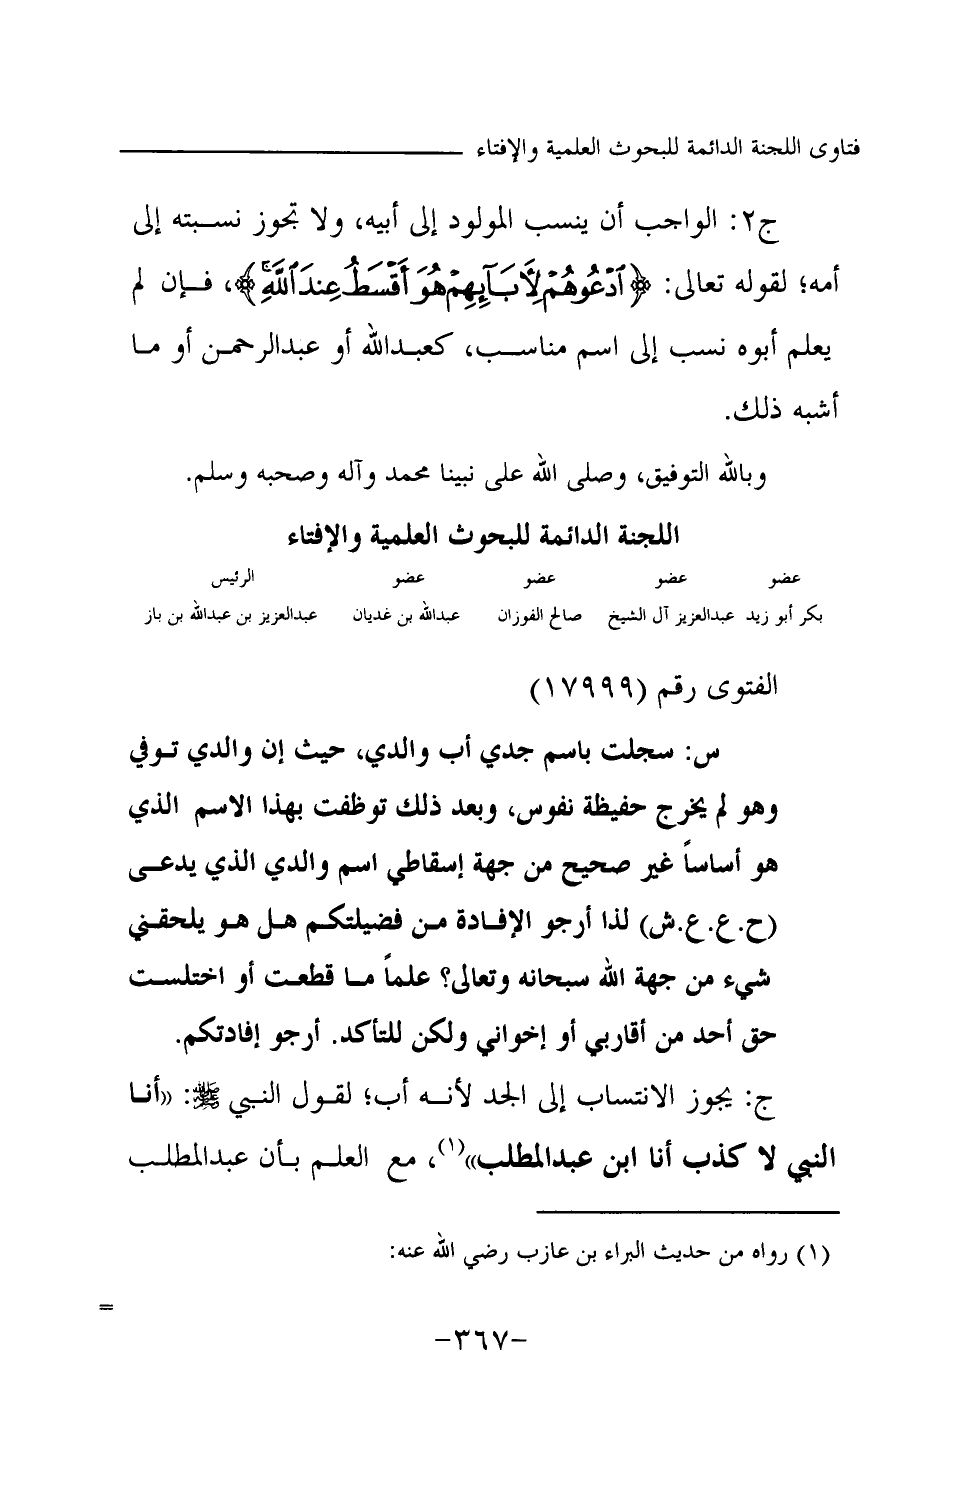 فتاوى اللجنة الدائمة للبحوث العلمية والإفتاء
ج٢: الواجب أن ينسب المولود إلى أبيه، ولا تجوز نسبته إلى
أمه؛ لقوله تعالى: ﴿ٱدۡعُوهُمۡ لِأٓبَآئِهِمۡ هُوَ أَقۡسَطُ عِندَ ٱللَّهِۚ﴾، فإن لم
يعلم أبوه نسب إلى اسم مناسب، كعبدالله أو عبدالرحمن أو ما
أشبه ذلك.
وبالله التوفيق، وصلى الله على نبينا محمد وآله وصحبه وسلم.
اللجنة الدائمة للبحوث العلمية والإفتاء
عضو عضو عضو عضو الرئيس
بكر أبو زيد عبدالعزيز آل الشيخ صالح الفوزان عبدالله بن غديان عبدالعزيز بن عبدالله بن باز
الفتوى رقم (١٧٩٩٩)
س: سجلت باسم جدي أب والدي، حيث إن والدي توفي
وهو لم يخرج حفيظة نفوس، وبعد ذلك توظفت بهذا الاسم الذي
هو أساساً غير صحيح من جهة إسقاطي اسم والدي الذي يدعى
(ح.ع.ع.ش) لذا أرجو الإفادة من فضيلتكم هل هو يلحقني
شيء من جهة الله سبحانه وتعالى؟ علماً ما قطعت أو اختلست
حق أحد من أقاربي أو إخواني ولكن للتأكد. أرجو إفادتكم.
ج: يجوز الانتساب إلى الجد لأنه أب؛ لقول النبي ﷺ: «أنا
النبي لا كذب أنا ابن عبدالمطلب»(١)، مع العلم بأن عبدالمطلب
(١) رواه من حديث البراء بن عازب رضي الله عنه:
=
-٣٦٧-